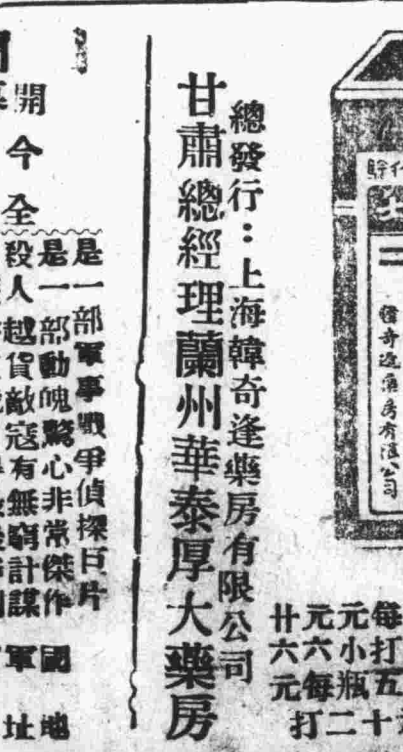 韓奇逢藥房有限公司
每打五十
元小瓶
元六每打二
廿六元
總發行：上海韓奇逢藥房有限公司
甘肅總經理蘭州華泰厚大藥房
是一部軍事戰爭偵探巨片
是一部動魄驚心非常傑作
殺人越貨敵寇有無窮計謀
開今全
國軍
地址